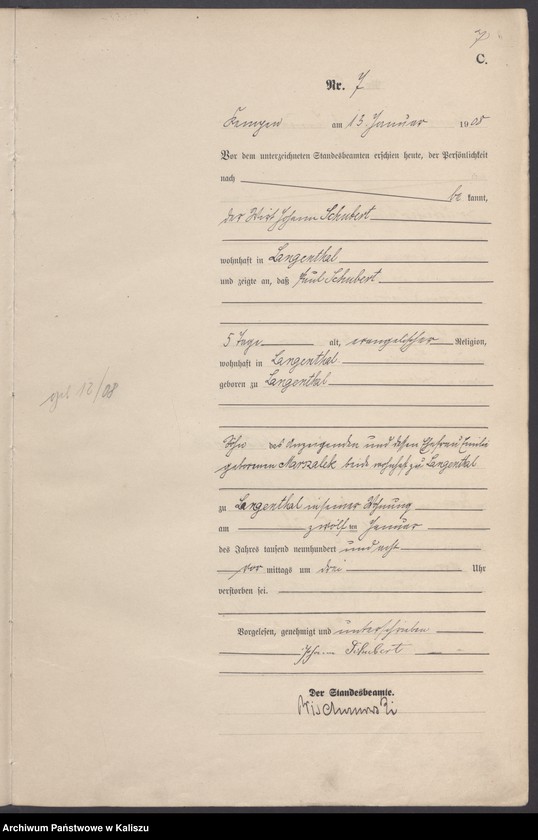 7
C.
Nr. 7
Kempen am 13. Januar 1908
Vor dem unterzeichneten Standesbeamten erschien heute, der Persönlichkeit
nach
be kannt,
der Wirt Johann Schubert
wohnhaft in Langenthal
und zeigte an, daß Paul Schubert
5 Tage alt, evangelischer Religion,
wohnhaft in Langenthal
geboren zu Langenthal
geb 12/08
Sohn des Anzeigenden und dessen Ehefrau Emilie
geborenen Marszalek beide wohnhaft zu Langenthal
zu Langenthal in seiner Wohnung
am zwölften Januar
des Jahres tausend neunhundert und acht
vor mittags um drei Uhr
verstorben sei.
Vorgelesen, genehmigt und unterschrieben
Johann Schubert
Der Standesbeamte.
Archiwum Państwowe w Kaliszu